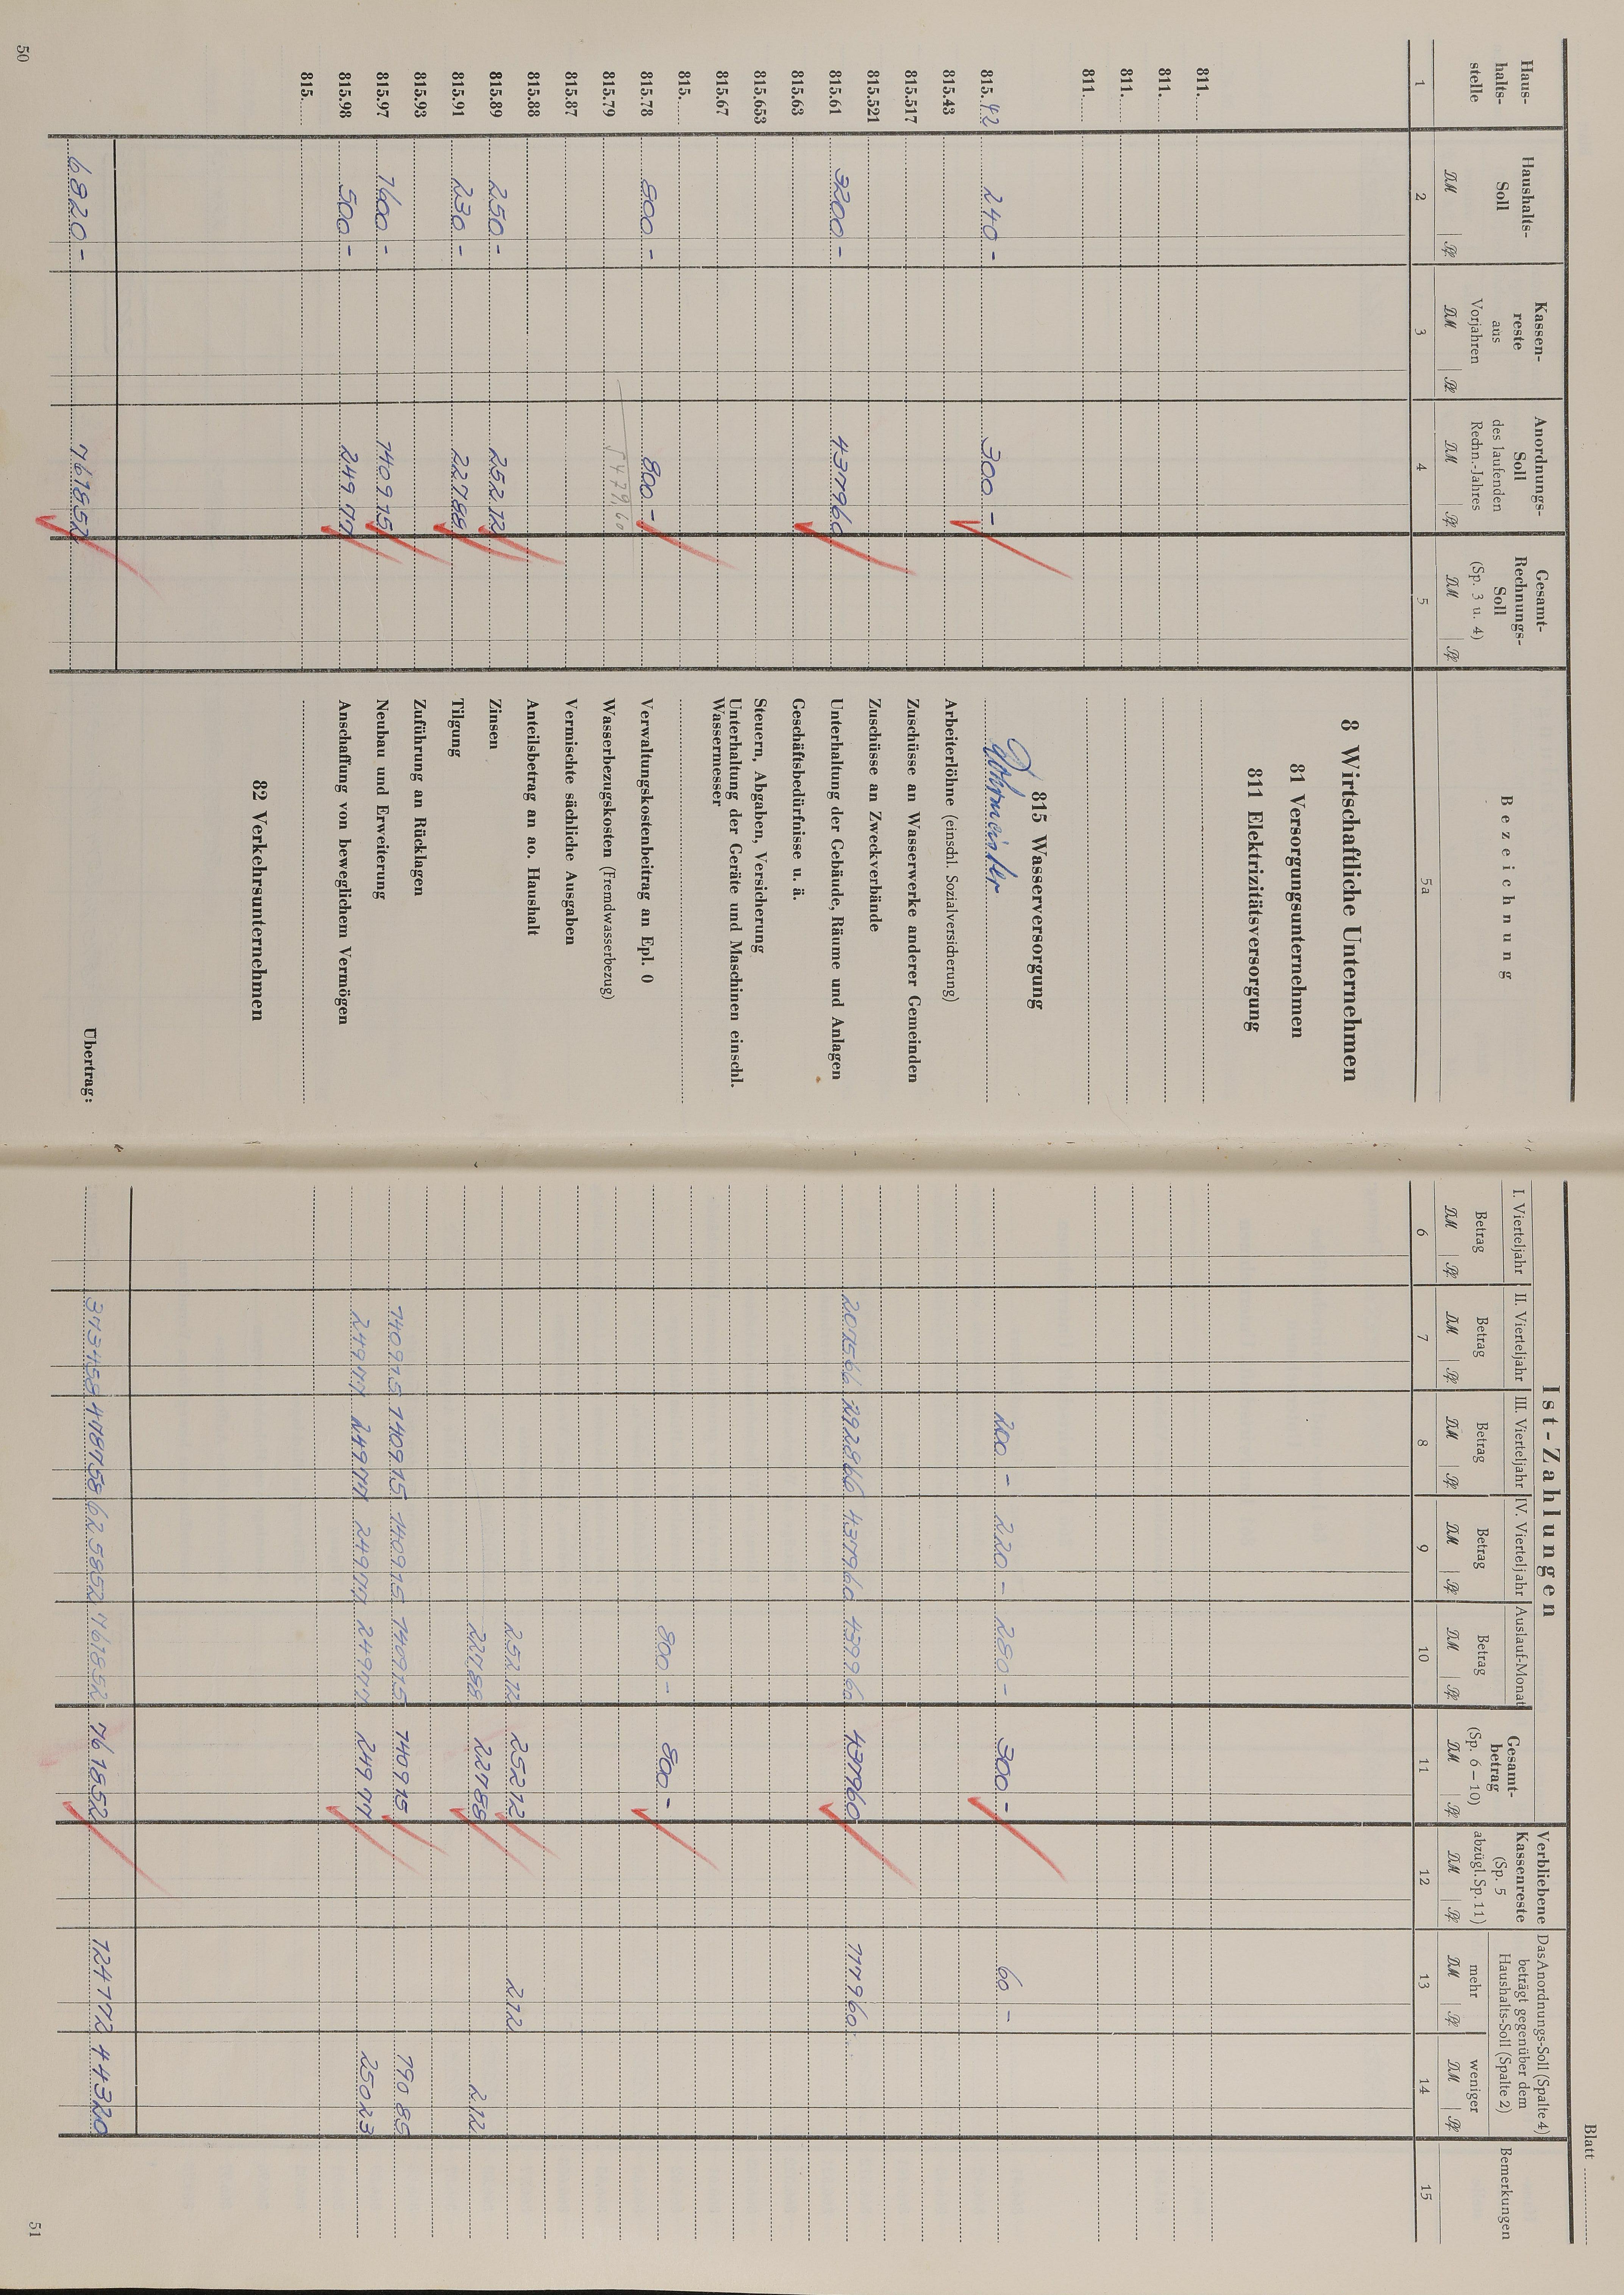 50
Haus-
halts-
stelle
Haushalts-
Soll
DM Pf.
Kassen-
reste
aus
Vorjahren
DM Pf.
Anordnungs-
Soll
des laufenden
Rechn.-Jahres
DM Pf.
Gesamt-
Rechnungs-
Soll
(Sp. 3 u. 4)
DM Pf.
Bezeichnung
1 2 3 4 5 5a
8 Wirtschaftliche Unternehmen
81 Versorgungsunternehmen
811 Elektrizitätsversorgung
811.
811.
811.
811.
815 Wasserversorgung
815.42 240 - 300 - Rohrmeister
815.43 Arbeiterlöhne (einschl. Sozialversicherung)
815.517 Zuschüsse an Wasserwerke anderer Gemeinden
815.521 Zuschüsse an Zweckverbände
815.61 3200 - 4379 60 Unterhaltung der Gebäude, Räume und Anlagen
815.63 Geschäftsbedürfnisse u. ä.
815.653 Steuern, Abgaben, Versicherung
815.67 Unterhaltung der Geräte und Maschinen einschl.
Wassermesser
815.
815.78 800 - 800 - Verwaltungskostenbeitrag an Epl. 0
815.79 5479,60 Wasserbezugskosten (Fremdwasserbezug)
815.87 Vermischte sächliche Ausgaben
815.88 Anteilsbetrag an ao. Haushalt
815.89 250 - 252 12 Zinsen
815.91 230 - 227 88 Tilgung
815.93 Zuführung an Rücklagen
815.97 1600 - 1409 15 Neubau und Erweiterung
815.98 500 - 249 77 Anschaffung von beweglichem Vermögen
815.
82 Verkehrsunternehmen
6820 - 7618 52 Übertrag:
Blatt
Ist-Zahlungen
I. Vierteljahr
Betrag
DM Pf.
II. Vierteljahr
Betrag
DM Pf.
III. Vierteljahr
Betrag
DM Pf.
IV. Vierteljahr
Betrag
DM Pf.
Auslauf-Monat
Betrag
DM Pf.
Gesamt-
betrag
(Sp. 6 – 10)
DM Pf.
Verbliebene
Kassenreste
(Sp. 5
abzügl. Sp. 11)
DM Pf.
Das Anordnungs-Soll (Spalte 4)
beträgt gegenüber dem
Haushalts-Soll (Spalte 2)
mehr
DM Pf.
weniger
DM Pf.
Bemerkungen
6 7 8 9 10 11 12 13 14 15
200 - 220 - 280 - 300 - 60 -
2075 66 2928 66 4379 60 4399 60 4379 60 1179 60
800 - 800 -
252 12 252 12 2 12
227 88 227 88 2 12
1409 15 1409 15 1409 15 1409 15 1409 15 190 85
249 77 249 77 249 77 249 77 249 77 250 23
3734 58 4787 58 6258 52 7618 52 7618 52 1241 72 443 20
51